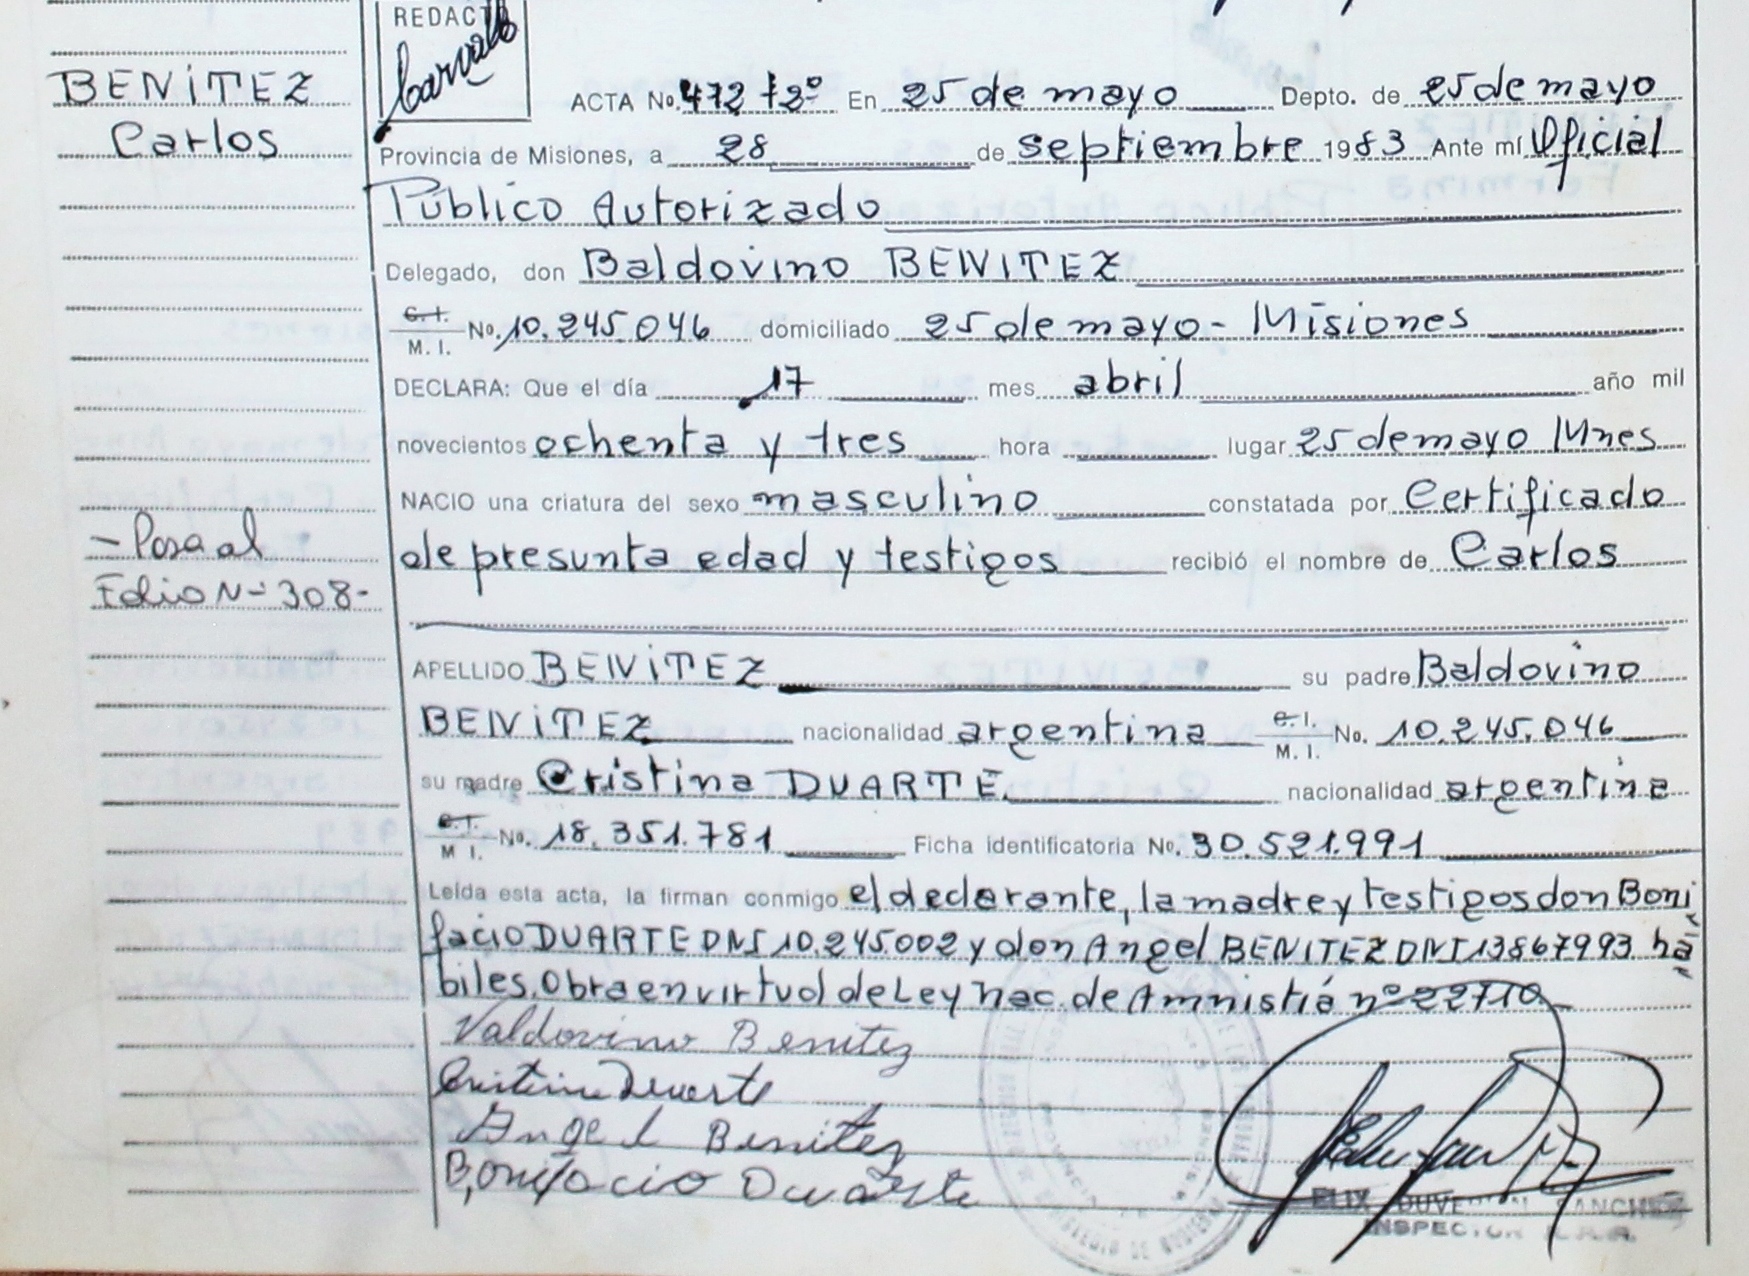 REDACT
BENITEZ
Carlos
ACTA No. 472 tº2º En 25 de mayo Depto. de 25 de mayo
Provincia de Misiones, a 28 de septiembre 1983 Ante mí Oficial
Público Autorizado
Delegado, don Baldovino BENITEZ
C. I. M. I. No. 10.245.046 domiciliado 25 de mayo - Misiones
DECLARA: Que el día 17 mes abril año mil
novecientos ochenta y tres hora lugar 25 de mayo Mnes
NACIO una criatura del sexo masculino constatada por Certificado
de presunta edad y testigos recibió el nombre de Carlos
- Pasa al
Folio Nº 308 -
APELLIDO BENITEZ su padre Baldovino
BENITEZ nacionalidad argentina C. I. M. I. No. 10.245.046
su madre Cristina DUARTE nacionalidad argentina
C. I. M I. No. 18.351.781 Ficha identificatoria No. 30.521.991
Leída esta acta, la firman conmigo el declarante, la madre y testigos don Boni
facio DUARTE DNI 10.245.002 y don Angel BENITEZ DNI 13867993 há
biles. Obra en virtud de Ley nac. de Amnistiá nº 22710
Valdovino Benitez
Cristina Duarte
Angel Benitez
Bonifacio Duarte
INSPECTOR